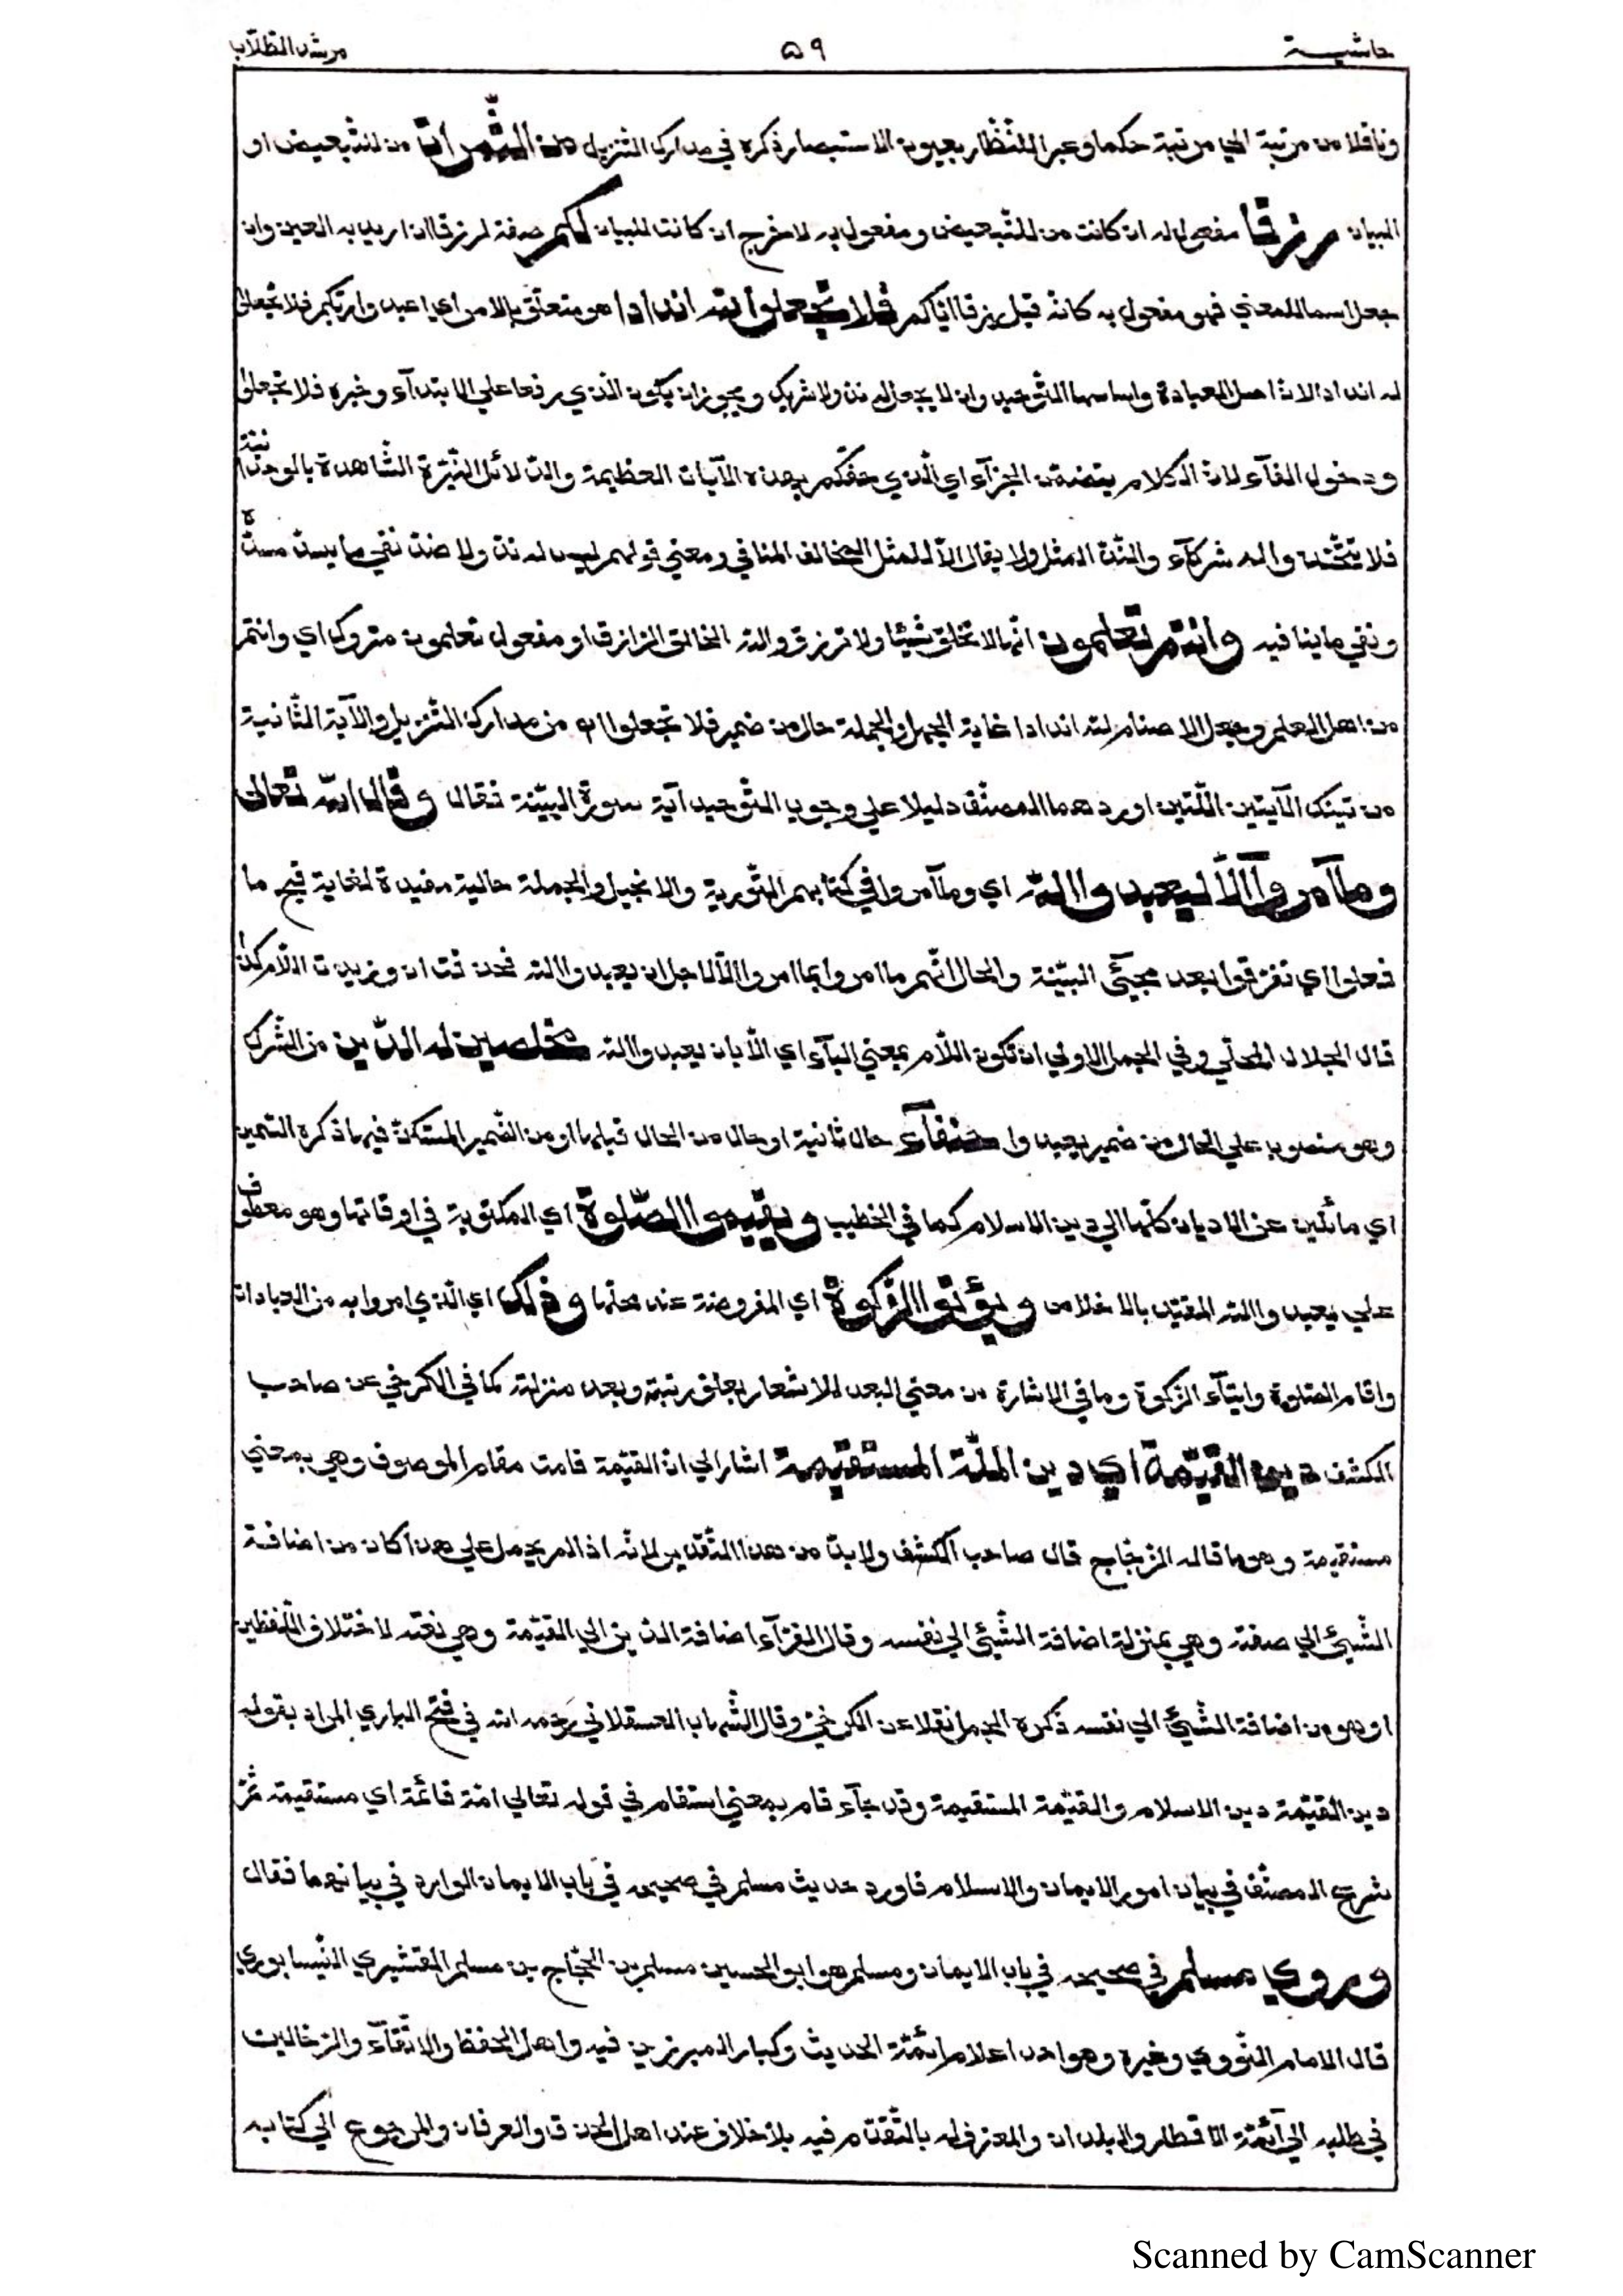 حاشيـــة ٥٩ مرشد الطلّاب
وناقلا من مرتبة الي مرتبة حكما وعبر اللنظّار بعيون الاستبصار ذكره في مدارك التنزيل من الثّمرات من للتبعيض او
البيان رزقا مفعول له ان كانت من للتّبعيض ومفعول به لاخرج ان كانت للبيان لكم صفة لرزقا ان اريد به العين وان
جعل اسما للمعني فهو مفعول به كانه قيل رزقا ايّاكم فلا تجعلوا لله اندادا هو متعلّق بالامر اي اعبدوا ربّكم فلا تجعلوا
له اندادا لان اصل العبادة واساسها التّوحيد وان لا يجعل له ندّ ولا شريك ويجوز ان يكون الذي رفعا علي الابتدآء وخبره فلا تجعلوا
ودخول الفآء لانّ الكلام يتضمّن الجزآء اي الّذي حفّكم بهذه الآيات العظيمة والدّلائل النّيّرة الشّاهدة بالوحدانيّة
فلا تتّخذوا له شركآء والنّدّ المثل ولا يقال الّا للمثل المخالف المنافي ومعني قولهم ليس له ندّ ولا ضدّ نفي ما يسدّ مسدّه
ونفي ما ينافيه وانتم تعلمون انّها لا تخلق شيئا ولا ترزق والله الخالق الرازق او مفعول تعلمون متروك اي وانتم
من اهل العلم وجعل الاصنام لله اندادا غاية الجهل والجملة حال من ضمير فلا تجعلوا اه من مدارك التّنزيل والآية الثّانية
من تينك الآيتين اللّتين اوردهما المصنّف دليلا علي وجوب التّوحيد آية سورة البيّنة فقال وقال الله تعالى
وما آمروآ الّا ليعبدوا الله اي وما آمروا في كتابهم التّورية والانجيل والجملة حالية مفيدة لغاية قبح ما
فعلوا اي تفرّقوا بعد مجيئ البيّنة والحال انّهم ما امروا بما امروا الّا لاجل ان يعبدوا الله فحذفت ان وزيدت اللّام كذا
قال الجلال المحلّي وفي الجمل الاولي ان تكون اللّام بمعني البآء اي الّا بان يعبدوا الله مخلصين له الدّين من الشّرك
وهو منصوب علي الحال من ضمير يعبدوا حنفآء حال ثانية او حال من الحال قبلها او من الضّمير المستكنّ فيها ذكره السّمين
اي مائلين عن الاديان كلّها الي دين الاسلام كما في الخطيب ويقيموا الصّلوة اي المكتوبة في اوقاتها وهو معطوف
علي يعبدوا الله المقيّد بالاخلاص ويؤتوا الزّكوة اي المفروضة عند محلّها وذلك اي الّذي امروا به من العبادات
واقام الصّلوة وايتآء الزّكوة وما في الاشارة من معني البعد للاشعار بعلوّ رتبته وبعد منزلته كما في الكرخي عن صاحب
الكشف دين القيّمة اي دين الملّة المستقيمة اشار الي انّ القيّمة قامت مقام الموصوف وهي بمعني
مستقيمة وهو ما قاله الزّجّاج قال صاحب الكشف ولا بدّ من هذا التّقدير لانّه اذا لم يحمل علي هذا كان من اضافة
الشّيئ الي صفته وهي بمنزلة اضافة الشّيئ الي نفسه وقال الفرّآء اضافة الدّين الي القيّمة وهي نعته لاختلاف اللّفظين
او هو من اضافة الشّيئ الي نفسه ذكره الجمل نقلا عن الكرخيّ وقال الشّهاب العسقلاني رَحمه الله في فتح الباري المراد بقوله
دين القيّمة دين الاسلام والقيّمة المستقيمة وقد جآء قام بمعني استقام في قوله تعالي امّة قائمة اي مستقيمة ثمّ
شرع المصنّف في بيان امور الايمان والاسلام فاورد حديث مسلم في صحيحه في باب الايمان الوارد في بيانهما فقال
وروي مسلم في صحيحه في باب الايمان ومسلم هو ابو الحسين مسلم بن الحجّاج بن مسلم القشيري النّيسابوري
قال الامام النّووي وغيره وهو احد اعلام ائمّة الحديث وكبار المبرزين فيه واهل الحفظ والاتّقآء والرّحّالين
في طلبه الي آئمّة الاقطار والبلدان والمعترف له بالتّقدّم فيه بلا خلاف عند اهل الحذق والعرفان والمرجوع الي كتابه
Scanned by CamScanner